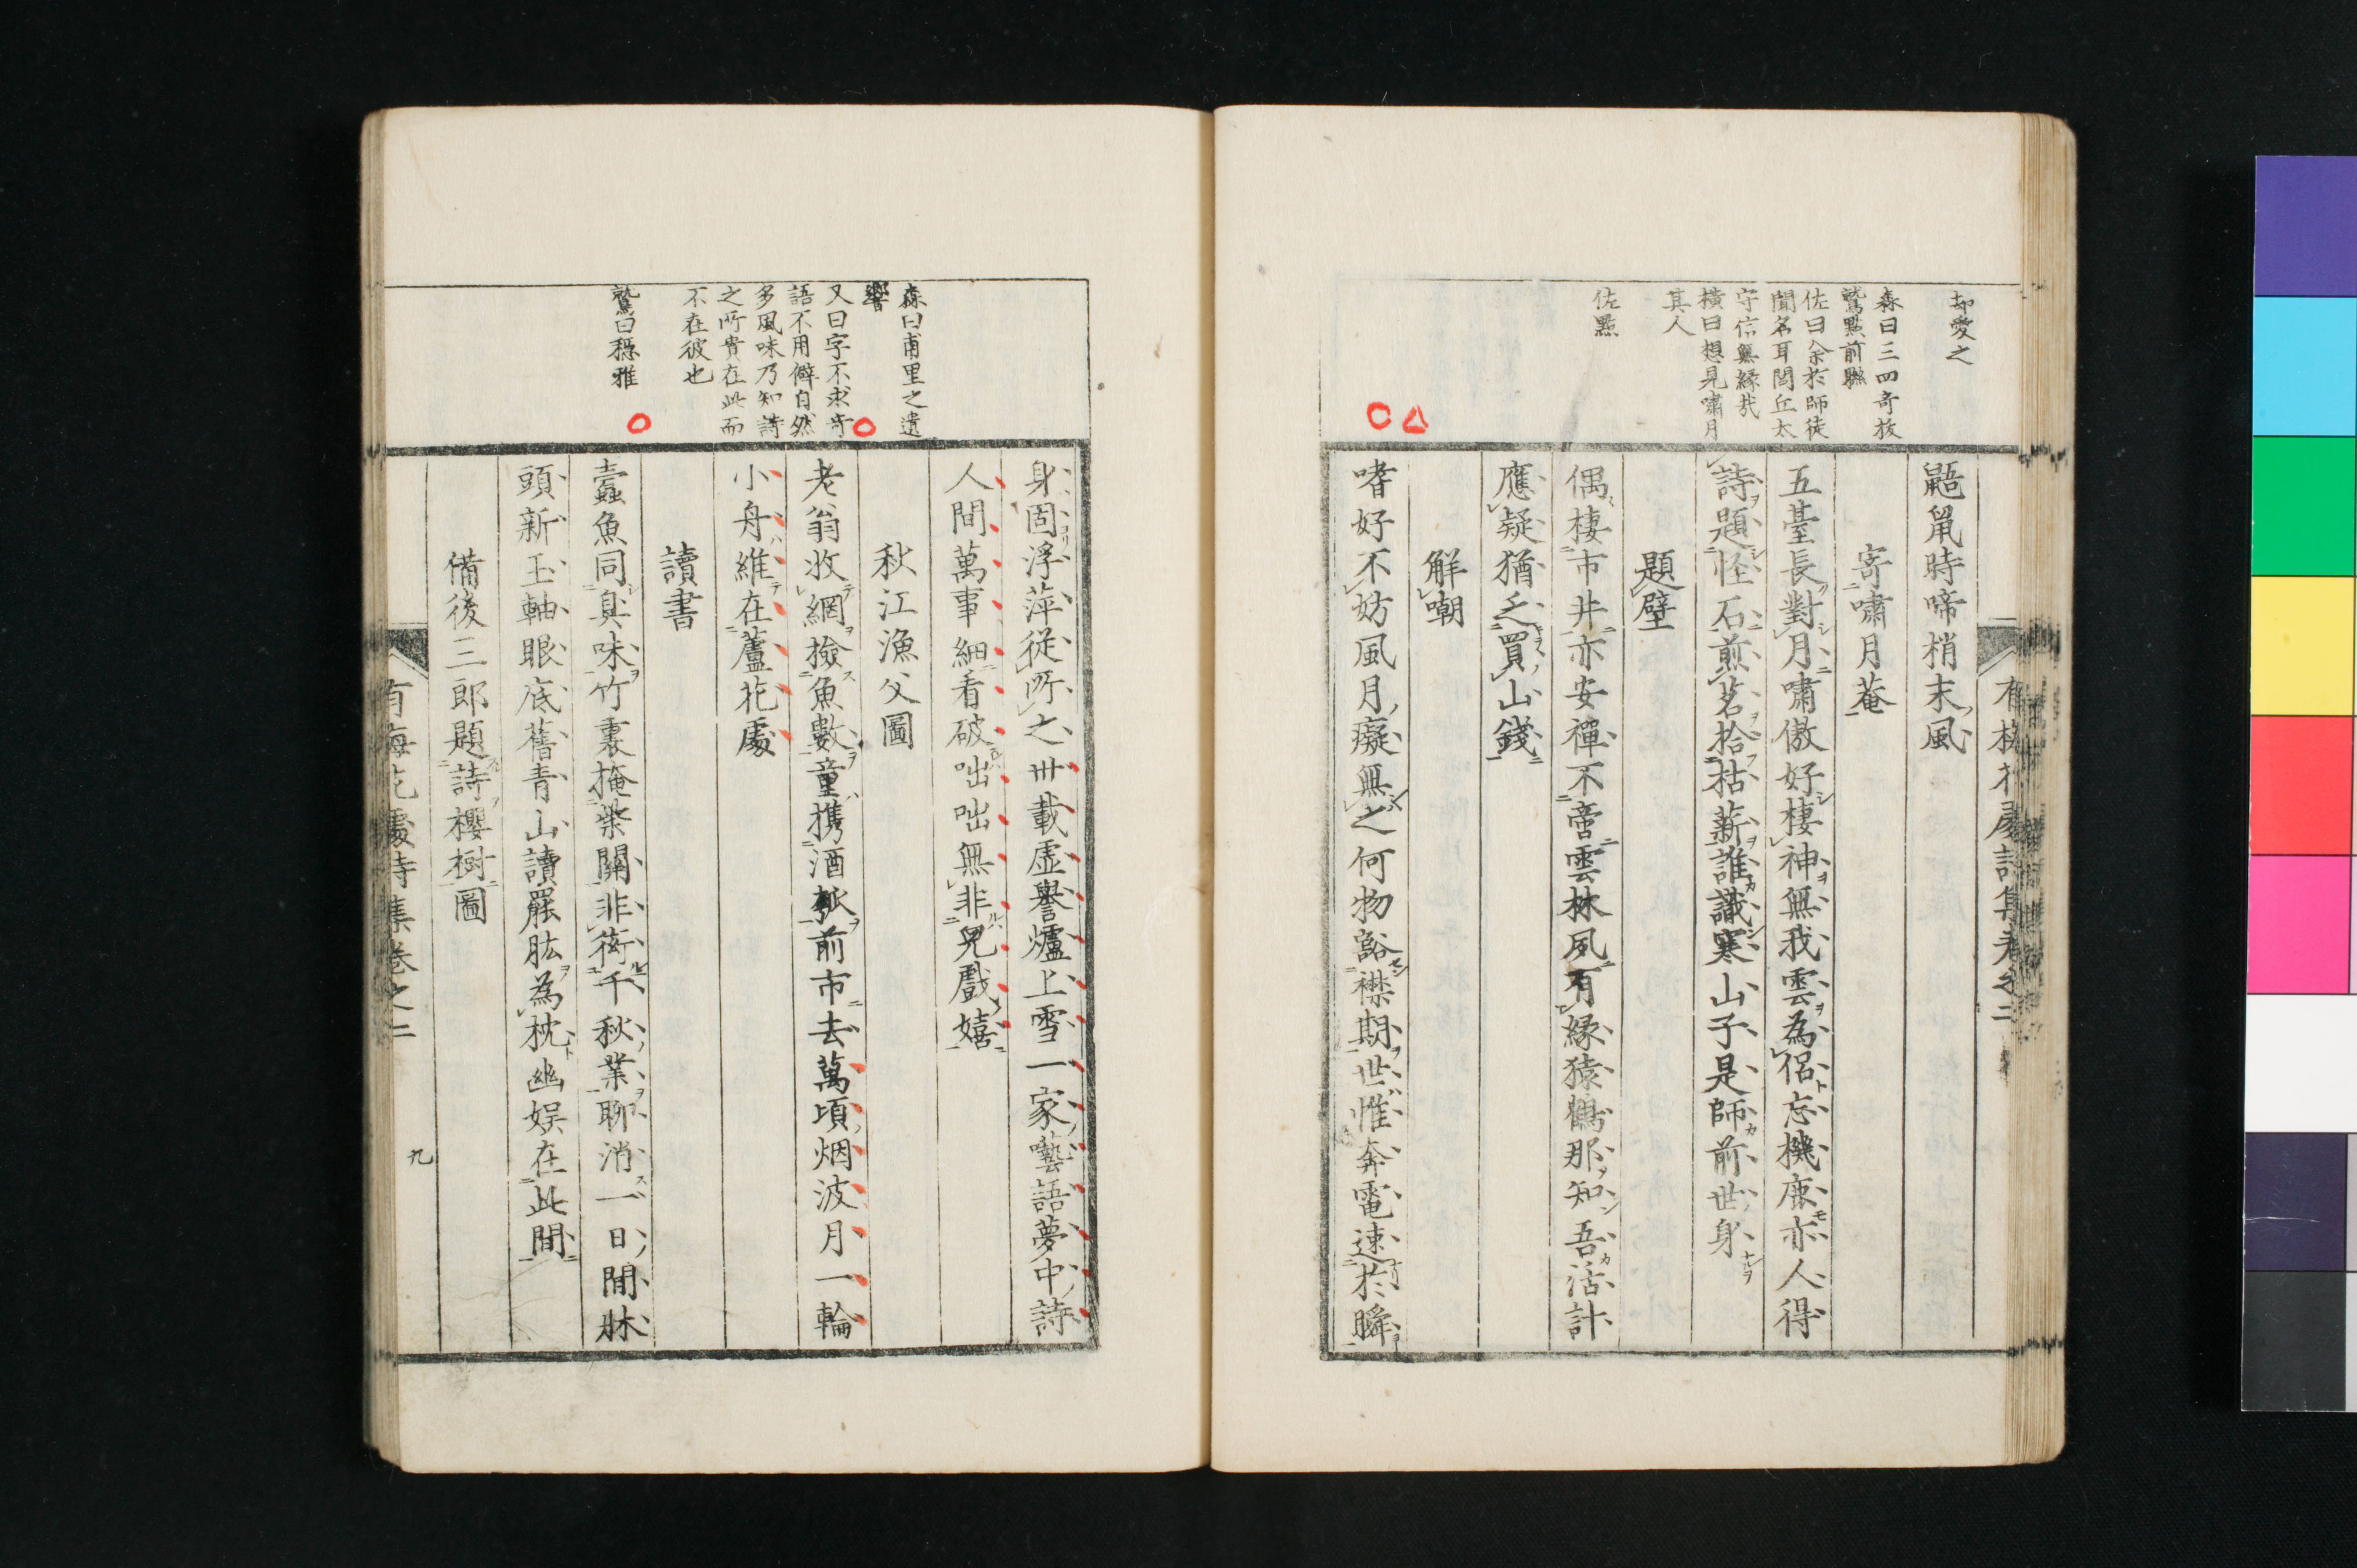 却愛之
森曰三四奇拔
鷲點前聯
佐曰余於師徒
聞名耳閭丘太
守信無緣哉
横曰想見嘯月
其人
佐點
鼯鼠時啼梢末風
寄嘯月菴
五臺長對月嘯傲好棲神無我雲為侶忘機鹿亦人得
詩題怪石煎茗拾枯薪誰識寒山子是師前世身
題壁
偶棲市井亦安禪不啻雲林夙有緣猿鶴那知吾活計
應疑猶乏買山錢
解嘲
嗜好不妨風月癡無之何物豁襟期世惟奔電速於瞬
森曰甫里之遺
響
又曰字不求奇
語不用僻自然
多風味乃知詩
之所貴在此而
不在彼也
鷲曰穩雅
身固浮萍從所之卅載虛譽爐上雪一家囈語夢中詩
人間萬事細看破咄咄無非兒戲嬉
秋江漁父圖
老翁收網撿魚數童攜酒瓢前市去萬頃烟波月一輪
小舟維在蘆花處
讀書
蠹魚同臭味竹裏掩柴關非衒千秋業聊消一日閒牀
頭新玉軸眼底舊青山讀罷肱為枕幽娛在此間
備後三郎題詩櫻樹圖
有梅花處詩集卷之二
九